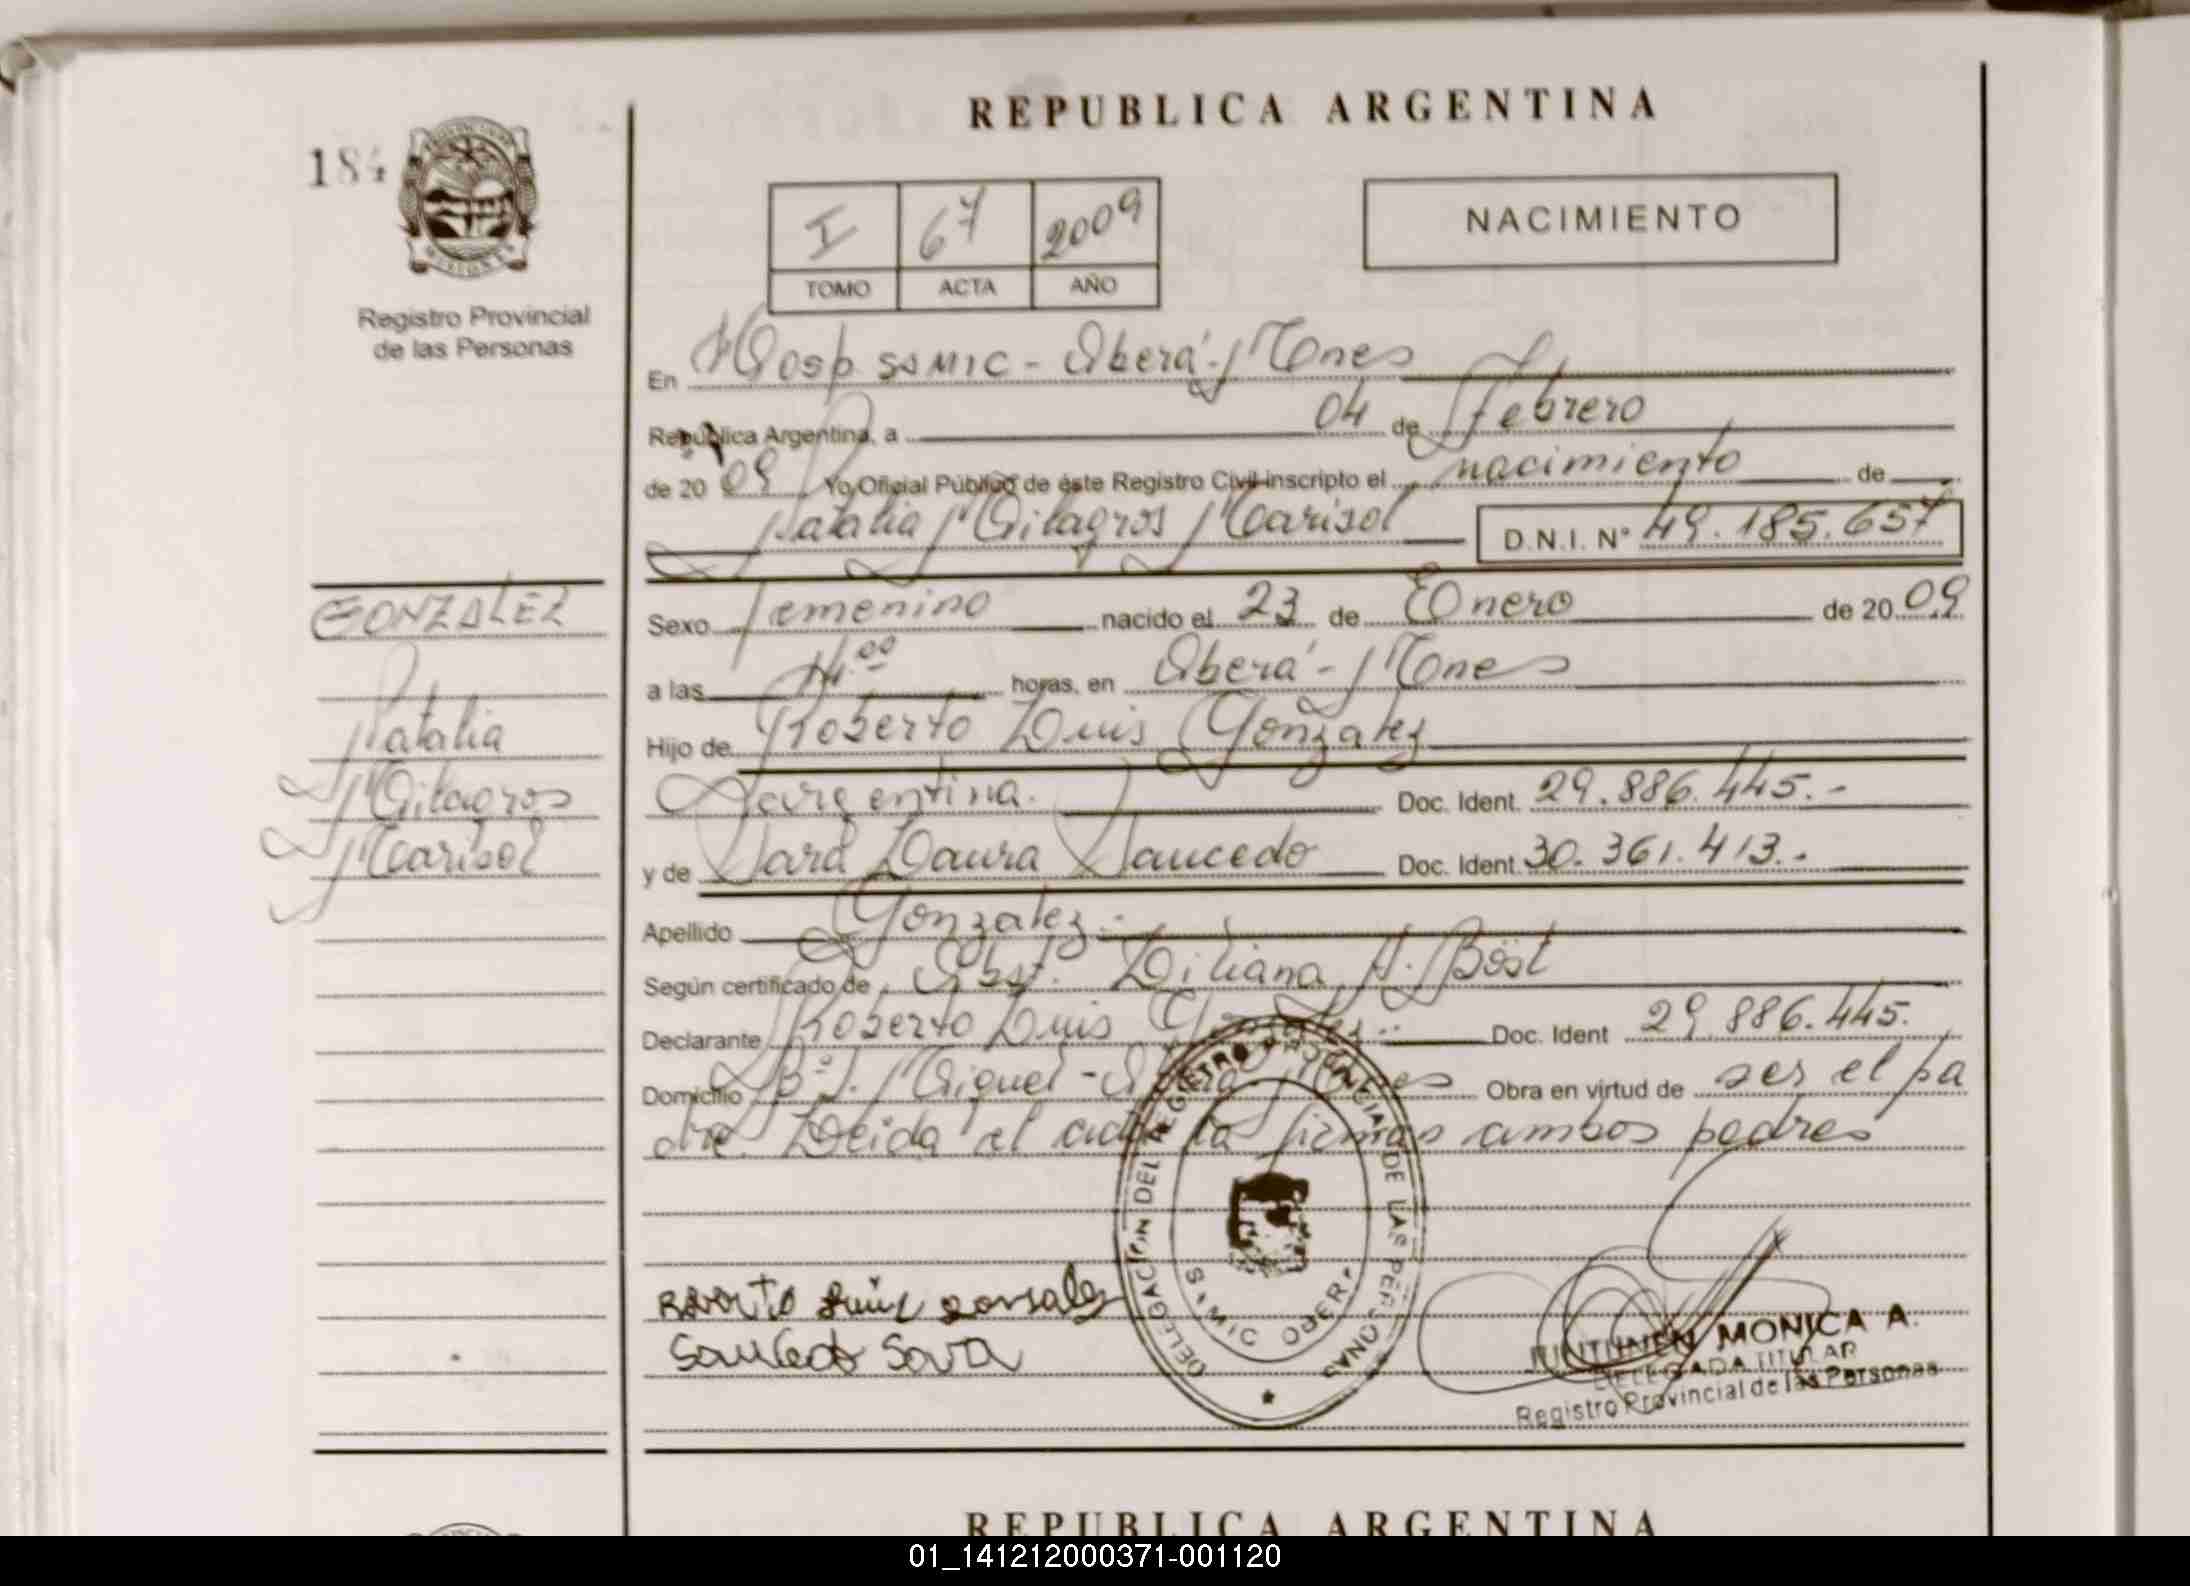 REPUBLICA ARGENTINA
184
MISIONES
Registro Provincial
de las Personas
I 67 2009
TOMO ACTA AÑO
NACIMIENTO
En Hosp SAMIC - Oberá - Mnes
República Argentina, a 04 de Febrero
de 20 09 Yo Oficial Público de éste Registro Civil inscripto el nacimiento de
Natalia Milagros Marisol D.N.I. N° 49.185.657
GONZALEZ
Natalia
Milagros
Marisol
Sexo femenino nacido el 23 de Enero de 20 09
a las horas, en Oberá - Mnes
Hijo de Roberto Luis Gonzalez
Argentina. Doc. Ident. 29.886.445.-
y de Sara Laura Saucedo Doc. Ident. 30.361.413.-
Apellido Gonzalez.-
Según certificado de Obst. Liliana A. Böst
Declarante Roberto Luis Gonzalez.- Doc. Ident 29.886.445.
Domicilio Bº S. Miguel - Oberá - Mnes Obra en virtud de ser el pa
dre. Leida el acta la firman ambos padres
DELEGACION DEL REGISTRO PROVINCIAL DE LAS PERSONAS
Roberto Luis gonsales
Saucedo Sara
MONICA A.
DELEGADA TITULAR
Registro Provincial de las Personas
REPUBLICA ARGENTINA
01_141212000371-001120